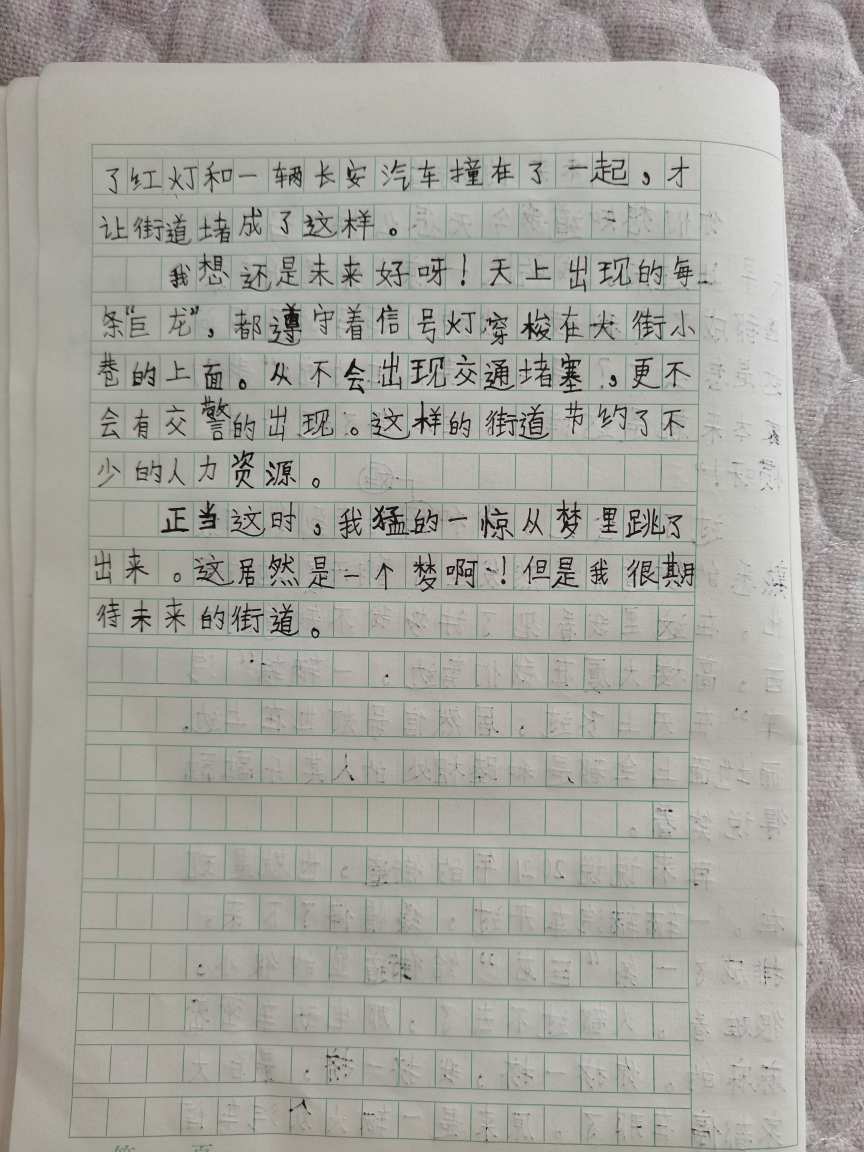 了红灯和一辆长安汽车撞在了一起，才
让街道堵成了这样。
我想还是未来好呀！天上出现的每
条“巨龙”，都遵守着信号灯穿梭在大街小
巷的上面。从不会出现交通堵塞，更不
会有交警的出现。这样的街道节约了不
少的人力资源。
正当这时，我猛的一惊从梦里跳了
出来。这居然是一个梦啊！但是我很期
待未来的街道。